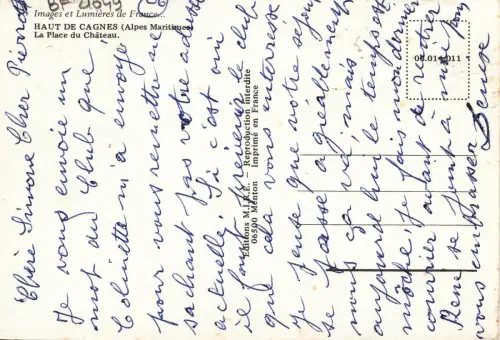 Images et Lumières de France...
HAUT DE CAGNES (Alpes Maritimes)
La Place du Château.
Editions M.I.K.E. — Reproduction interdite
06500 Menton Imprimé en France
06.014.011
Chère Simone Cher Pierrot
Je vous envoie un
mot du Club que
Colinette m'a envoyé
pour vous remettre ne
sachant pas votre adresse
actuelle. Si c'est oui
il faut prévenir le club
que cela vous interesse
Je pense que votre séjour
se passe agréablement
nous ça va, mais
aujourd'hui le temps est
moche, je fais mon dernier
courrier avant de rentrer
René se joint à moi pour
vous embrasser Denise